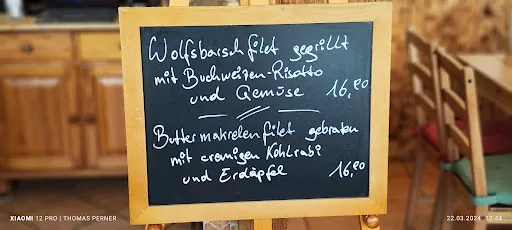 Wolfsbarschfilet gegrillt
mit Buchweizen-Risotto
und Gemüse 16,90
Buttermakrelenfilet gebraten
mit cremigen Kohlrabi
und Erdäpfel 16,90
XIAOMI 12 PRO | THOMAS PERNER
22.03.2024 12:44